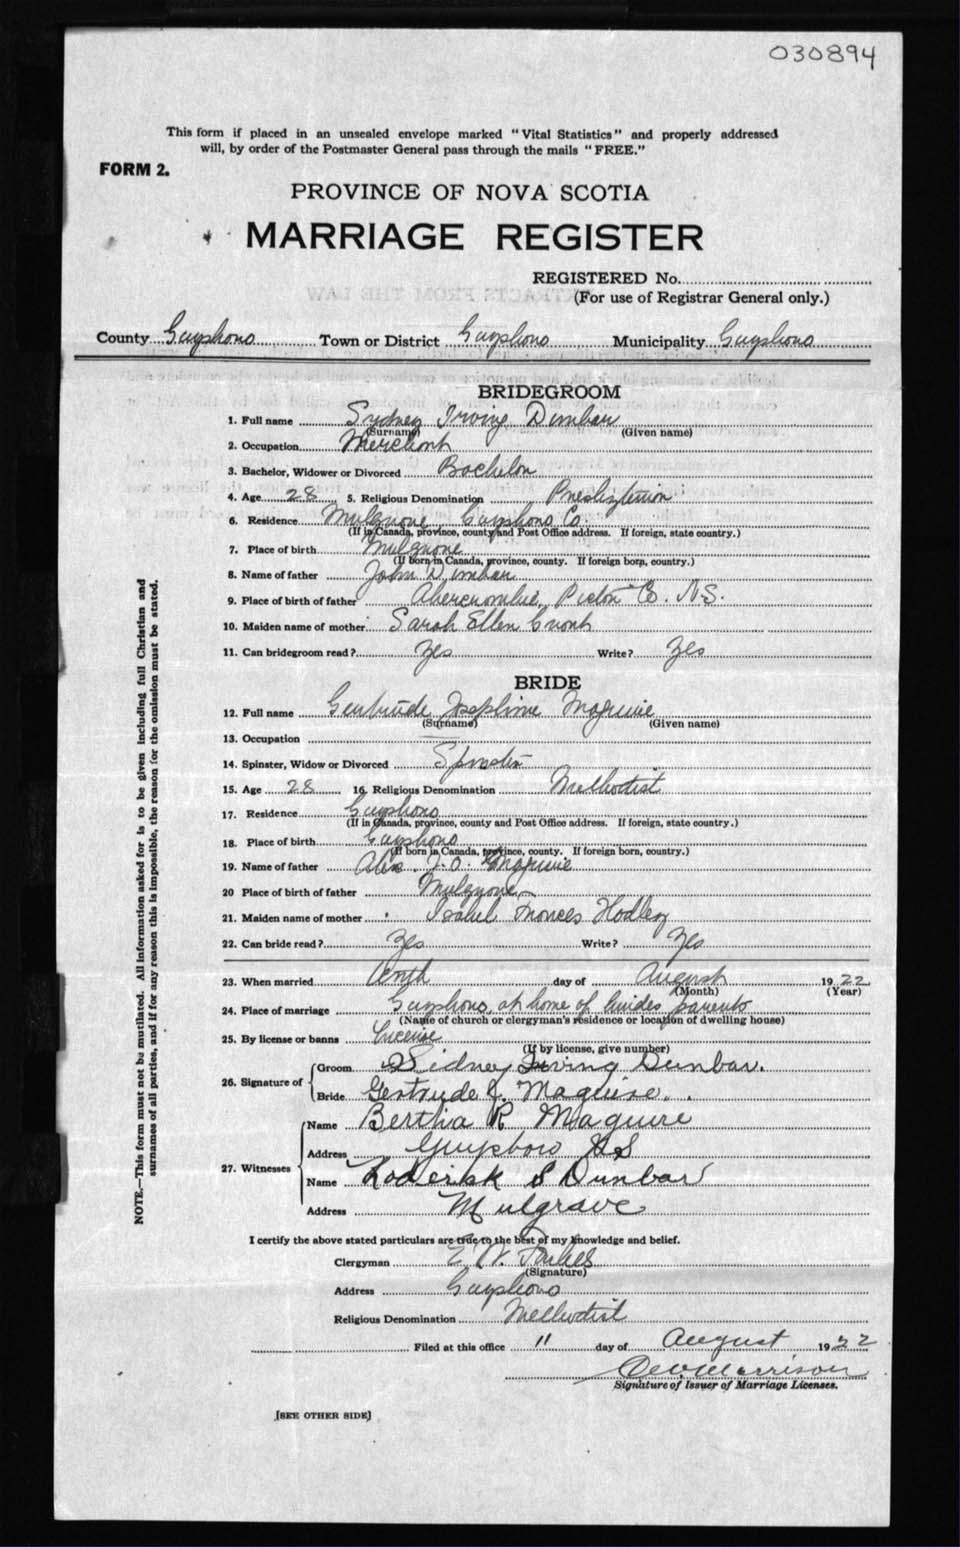 030894
This form if placed in an unsealed envelope marked "Vital Statistics" and properly addressed
will, by order of the Postmaster General pass through the mails "FREE."
FORM 2.
PROVINCE OF NOVA SCOTIA
MARRIAGE REGISTER
REGISTERED No.
(For use of Registrar General only.)
County Guysboro Town or District Guysboro Municipality Guysboro
BRIDEGROOM
1. Full name Sydney Irving Dunbar
(Surname) (Given name)
2. Occupation Merchant
3. Bachelor, Widower or Divorced Bachelor
4. Age 28 5. Religious Denomination Presbyterian
6. Residence Mulgrave Guysboro Co.
(If in Canada, province, county and Post Office address. If foreign, state country.)
7. Place of birth Mulgrave
(If born in Canada, province, county. If foreign born, country.)
8. Name of father John Dunbar
9. Place of birth of father Abercrombie, Pictou Co. N.S.
10. Maiden name of mother Sarah Ellen
11. Can bridegroom read? Yes Write? Yes
BRIDE
12. Full name Gertrude Josephine Maguire
(Surname) (Given name)
13. Occupation
14. Spinster, Widow or Divorced Spinster
15. Age 28 16. Religious Denomination Methodist
17. Residence Guysboro
(If in Canada, province, county and Post Office address. If foreign, state country.)
18. Place of birth Guysboro
(If born in Canada, province, county. If foreign born, country.)
19. Name of father J. O. Maguire
20 Place of birth of father Mulgrave
21. Maiden name of mother Isabel Frances Hadley
22. Can bride read? Yes Write? Yes
23. When married tenth day of August 1922
(Month) (Year)
24. Place of marriage Guysboro, at home of brides parents
(Name of church or clergyman's residence or location of dwelling house)
25. By license or banns License
(If by license, give number)
26. Signature of Groom Sidney Irving Dunbar.
Bride Gertrude J. Maguire.
27. Witnesses Name Bertha R Maguire
Address Guysboro N S
Name Roderick S Dunbar
Address Mulgrave
I certify the above stated particulars are true to the best of my knowledge and belief.
Clergyman E. W. Forbes
(Signature)
Address Guysboro
Religious Denomination Methodist
Filed at this office 11 day of August 1922
Morrison
Signature of Issuer of Marriage Licenses.
[SEE OTHER SIDE]
NOTE.—This form must not be mutilated. All information asked for is to be given including full Christian and
surnames of all parties, and if for any reason this is impossible, the reason for the omission must be stated.